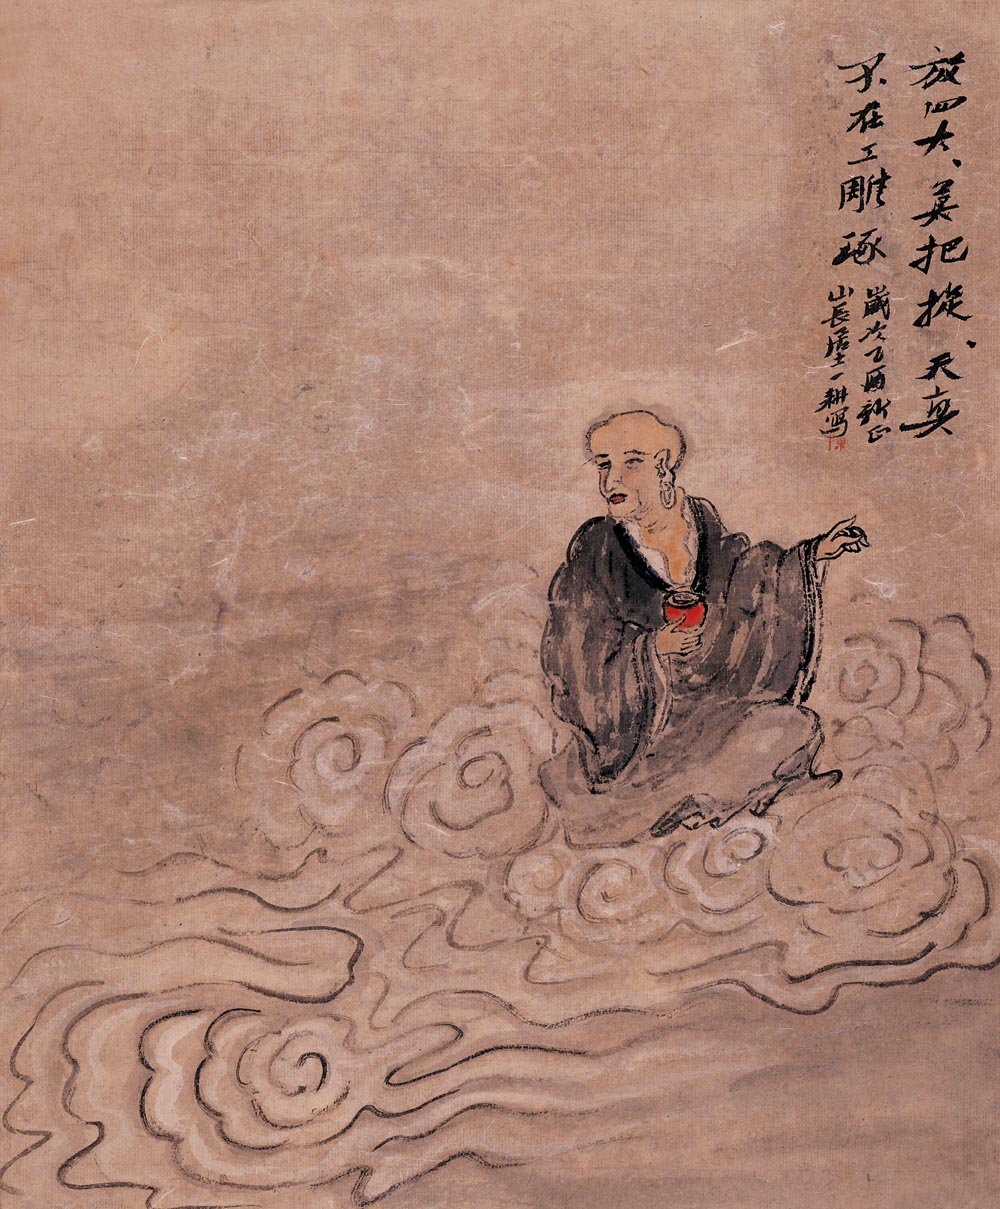 放四大、莫把捉、天真
不在工雕琢
歲次乙酉新正
山長居士一耕寫